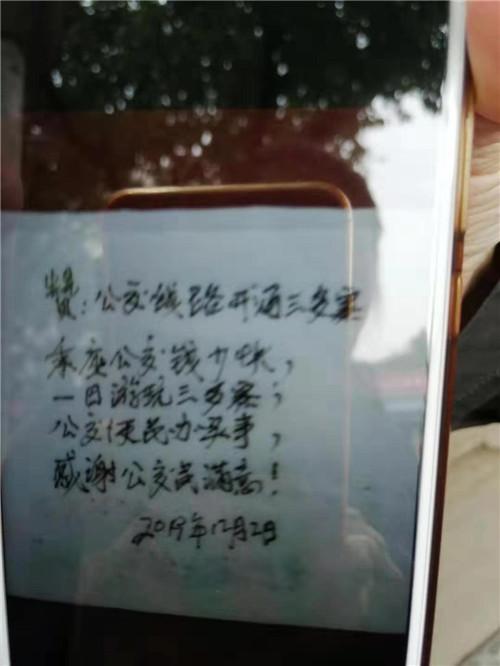 赞:公交线路开通三多寨
乘座公交钱少快,
一日游玩三多寨;
公交便民办实事,
感谢公交民满意!
2019年12月2日